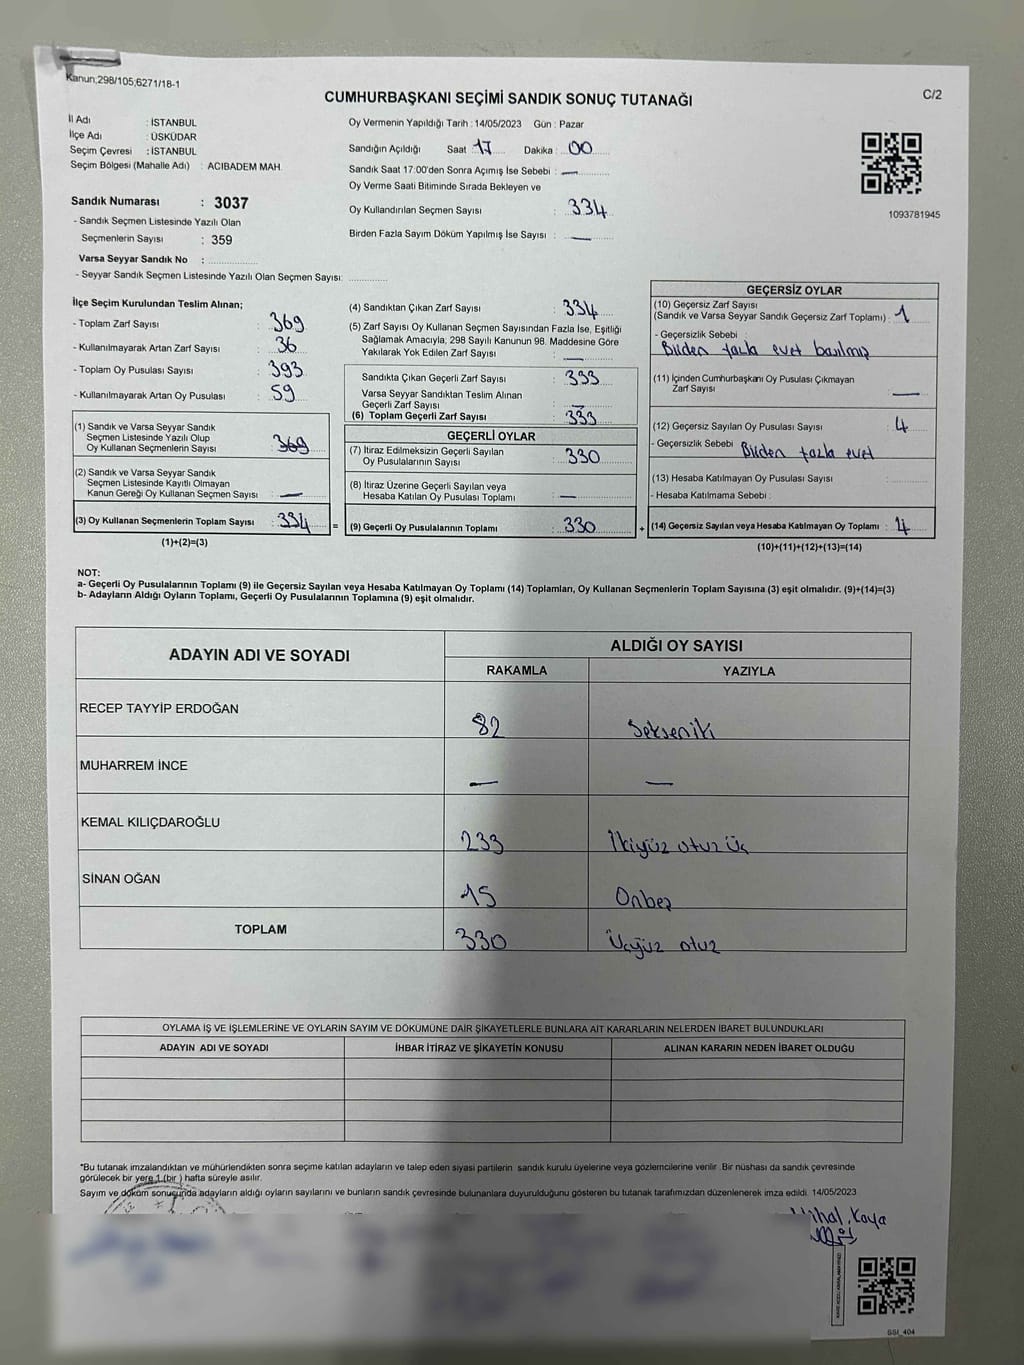 Kanun;298/105,6271/18-1
CUMHURBAŞKANI SEÇİMİ SANDIK SONUÇ TUTANAĞI
C/2
İl Adı : İSTANBUL
İlçe Adı : ÜSKÜDAR
Seçim Çevresi : İSTANBUL
Seçim Bölgesi (Mahalle Adı) : ACIBADEM MAH.
Sandık Numarası : 3037
- Sandık Seçmen Listesinde Yazılı Olan
Seçmenlerin Sayısı : 359
Varsa Seyyar Sandık No :
- Seyyar Sandık Seçmen Listesinde Yazılı Olan Seçmen Sayısı:
Oy Vermenin Yapıldığı Tarih : 14/05/2023 Gün : Pazar
Sandığın Açıldığı Saat 17 Dakika : 00
Sandık Saat 17:00'den Sonra Açımış İse Sebebi : —
Oy Verme Saati Bitiminde Sırada Bekleyen ve
Oy Kullandırılan Seçmen Sayısı : 334
Birden Fazla Sayım Döküm Yapılmış İse Sayısı : —
1093781945
İlçe Seçim Kurulundan Teslim Alınan;
- Toplam Zarf Sayısı : 369
- Kullanılmayarak Artan Zarf Sayısı : 36
- Toplam Oy Pusulası Sayısı : 393
- Kullanılmayarak Artan Oy Pusulası : 59
(1) Sandık ve Varsa Seyyar Sandık
Seçmen Listesinde Yazılı Olup
Oy Kullanan Seçmenlerin Sayısı : 369
(2) Sandık ve Varsa Seyyar Sandık
Seçmen Listesinde Kayıtlı Olmayan
Kanun Gereği Oy Kullanan Seçmen Sayısı : —
(3) Oy Kullanan Seçmenlerin Toplam Sayısı : 334
(1)+(2)=(3)
(4) Sandıktan Çıkan Zarf Sayısı : 334
(5) Zarf Sayısı Oy Kullanan Seçmen Sayısından Fazla İse, Eşitliği
Sağlamak Amacıyla, 298 Sayılı Kanunun 98. Maddesine Göre
Yakılarak Yok Edilen Zarf Sayısı : —
Sandıkta Çıkan Geçerli Zarf Sayısı : 333
Varsa Seyyar Sandıktan Teslim Alınan
Geçerli Zarf Sayısı : —
(6) Toplam Geçerli Zarf Sayısı : 333
GEÇERLİ OYLAR
(7) İtiraz Edilmeksizin Geçerli Sayılan
Oy Pusulalarının Sayısı : 330
(8) İtiraz Üzerine Geçerli Sayılan veya
Hesaba Katılan Oy Pusulası Toplamı : —
= (9) Geçerli Oy Pusulalarının Toplamı : 330
GEÇERSİZ OYLAR
(10) Geçersiz Zarf Sayısı
(Sandık ve Varsa Seyyar Sandık Geçersiz Zarf Toplamı) : 1
- Geçersizlik Sebebi :
Birden fazla evet basılmış
(11) İçinden Cumhurbaşkanı Oy Pusulası Çıkmayan
Zarf Sayısı : —
(12) Geçersiz Sayılan Oy Pusulası Sayısı : 4
- Geçersizlik Sebebi Birden fazla evet
(13) Hesaba Katılmayan Oy Pusulası Sayısı :
- Hesaba Katılmama Sebebi :
+ (14) Geçersiz Sayılan veya Hesaba Katılmayan Oy Toplamı : 4
(10)+(11)+(12)+(13)=(14)
NOT:
a- Geçerli Oy Pusulalarının Toplamı (9) ile Geçersiz Sayılan veya Hesaba Katılmayan Oy Toplamı (14) Toplamları, Oy Kullanan Seçmenlerin Toplam Sayısına (3) eşit olmalıdır. (9)+(14)=(3)
b- Adayların Aldığı Oyların Toplamı, Geçerli Oy Pusulalarının Toplamına (9) eşit olmalıdır.
ADAYIN ADI VE SOYADI
ALDIĞI OY SAYISI
RAKAMLA YAZIYLA
RECEP TAYYİP ERDOĞAN 82 Sekseniki
MUHARREM İNCE — —
KEMAL KILIÇDAROĞLU 233 İkiyüz otuz üç
SİNAN OĞAN 15 Onbeş
TOPLAM 330 Üçyüz otuz
OYLAMA İŞ VE İŞLEMLERİNE VE OYLARIN SAYIM VE DÖKÜMÜNE DAİR ŞİKAYETLERLE BUNLARA AİT KARARLARIN NELERDEN İBARET BULUNDUKLARI
ADAYIN ADI VE SOYADI İHBAR İTİRAZ VE ŞİKAYETİN KONUSU ALINAN KARARIN NEDEN İBARET OLDUĞU
*Bu tutanak imzalandıktan ve mühürlendikten sonra seçime katılan adayların ve talep eden siyasi partilerin sandık kurulu üyelerine veya gözlemcilerine verilir. Bir nüshası da sandık çevresinde
görülecek bir yere 1 (bir ) hafta süreyle asılır.
Sayım ve döküm sonucunda adayların aldığı oyların sayılarını ve bunların sandık çevresinde bulunanlara duyurulduğunu gösteren bu tutanak tarafımızdan düzenlenerek imza edildi. 14/05/2023
Kaya
SSI_404